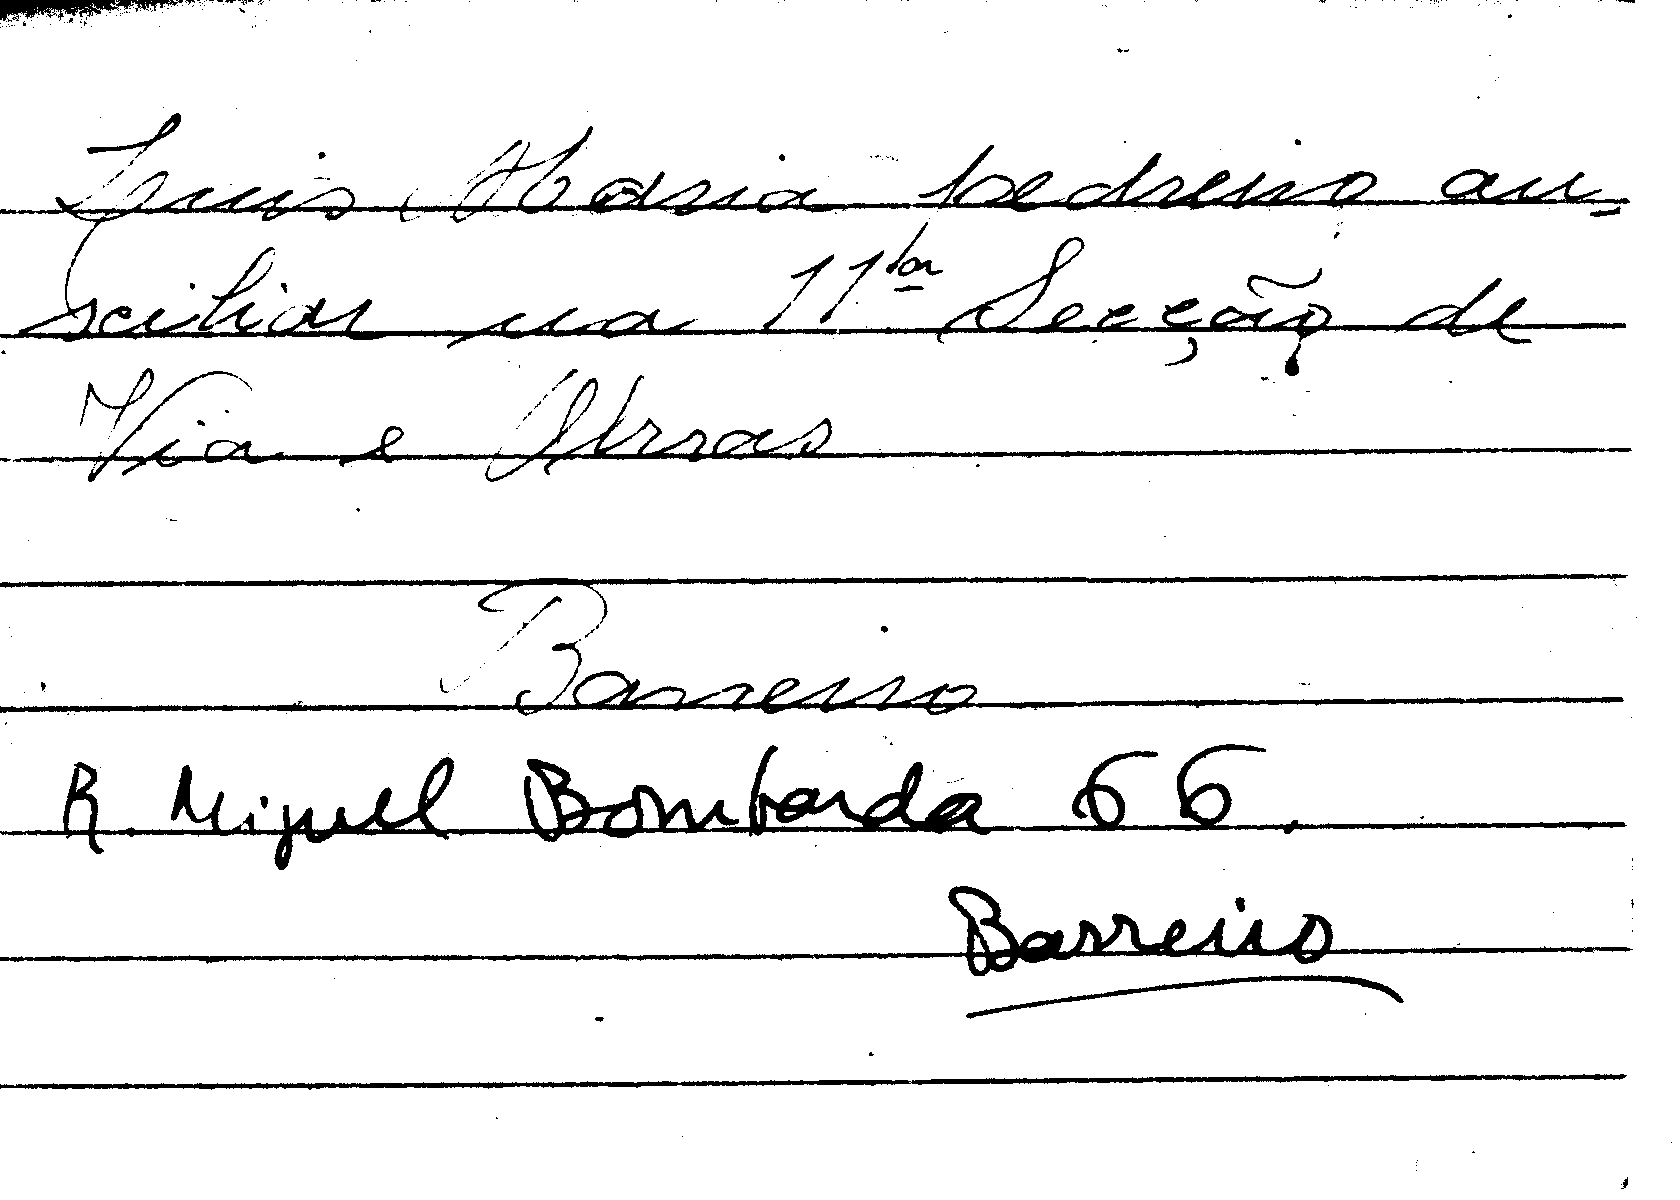 Luis Maria pedreiro au-
sciliar na 11ª Secção de
Via e Obras
Barreiro
R. Miguel Bombarda 66.
Barreiro